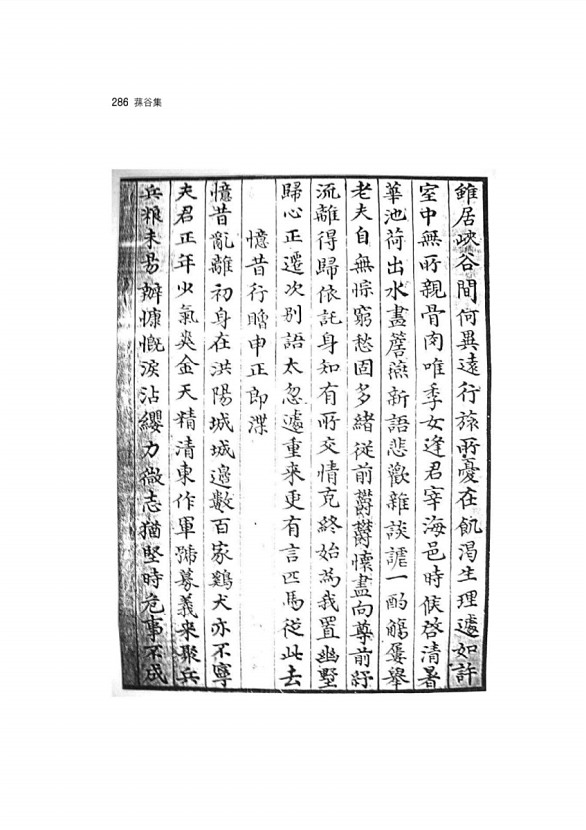 286 蓀谷集
雖居峽谷間何異遠行旅所憂在飢渴生理遽如許
室中無所親骨肉唯季女逢君宰海邑時候啓清暑
華池荷出水畫簷燕新語悲歡雜談謔一酌觴屢舉
老夫自無悰窮愁固多緒從前欝欝懷盡向尊前紓
流離得歸依託身知有所交情克終始為我置幽墅
歸心正遷次別語太忽遽重來更有言匹馬從此去
憶昔行贈申正郎渫
憶昔亂離初身在洪陽城城邊數百家鷄犬亦不寧
夫君正年少氣爽金天精清東作軍號募義來聚兵
兵粮未易辦慷慨淚沾纓力微志猶堅時危事不成